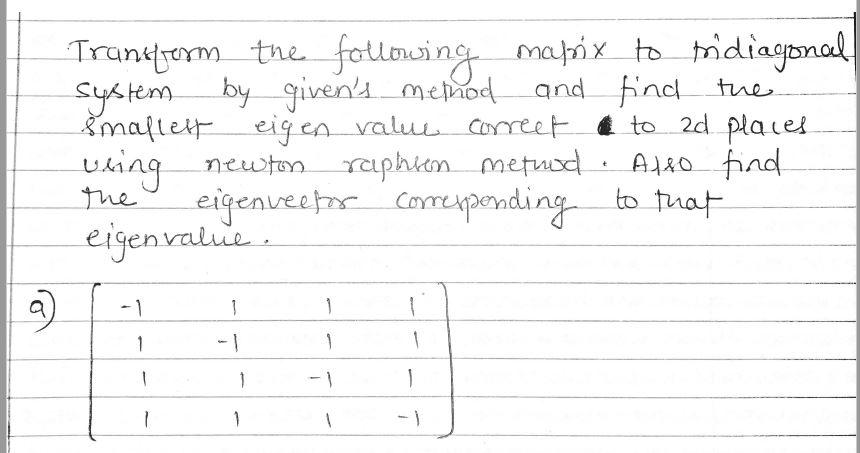 Transform the following matrix to tridiagonal
system by given's method and find the
smallest eigen value correct to 2d places
using newton raphson method. Also find
the eigenvector corresponding to that
eigenvalue.
a) -1 1 1 1
1 -1 1 1
1 1 -1 1
1 1 1 -1